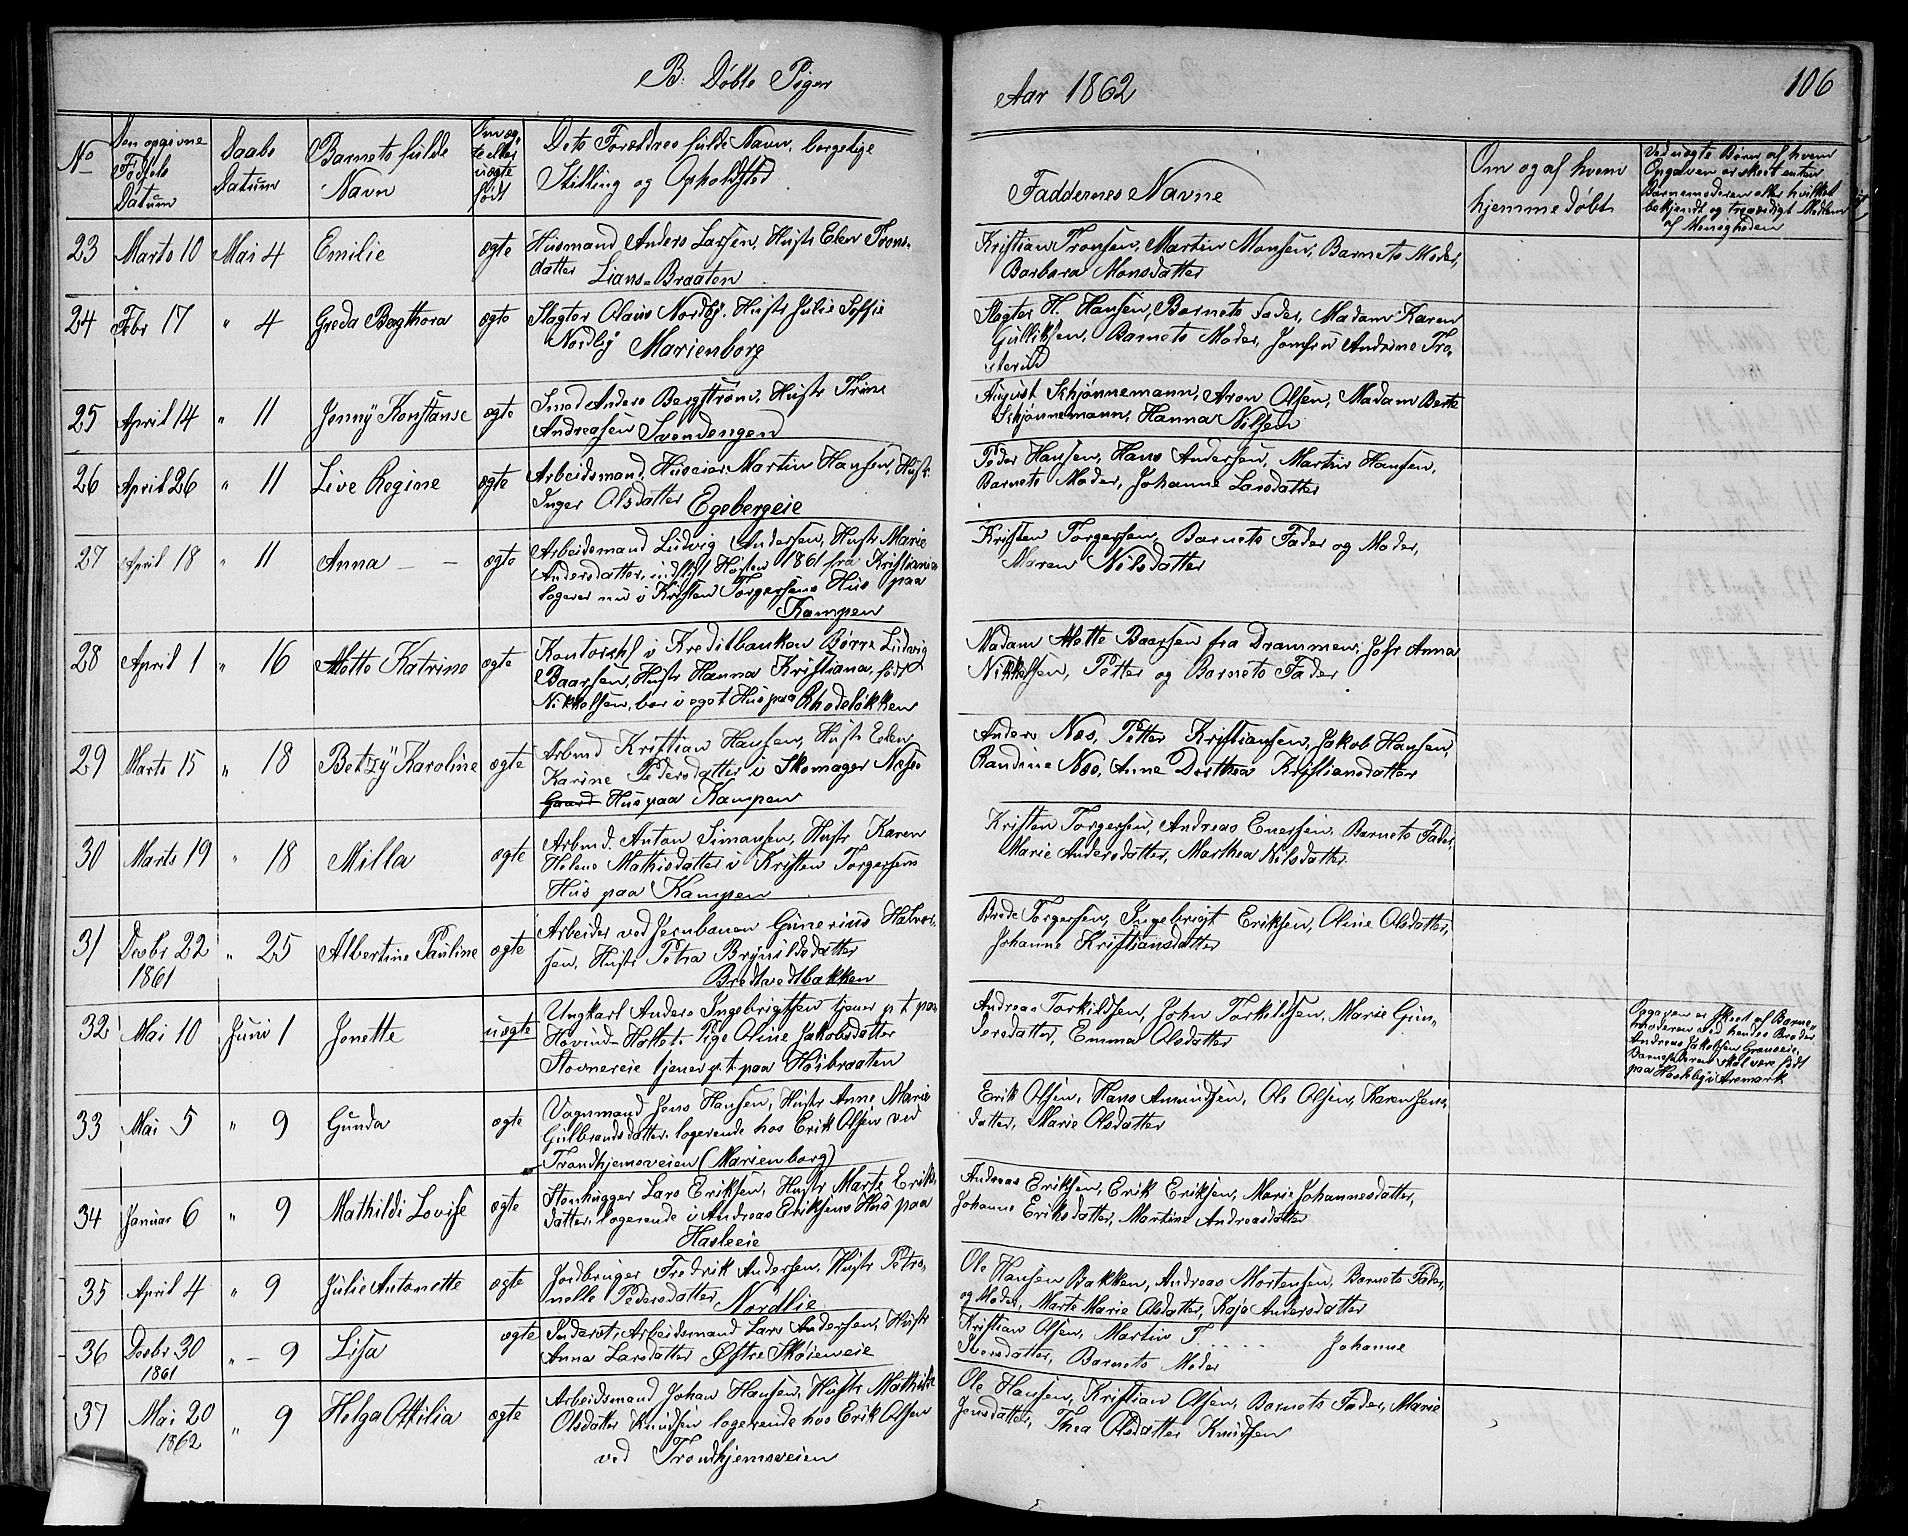 B: Döbte Piger
Aar 1862
106
No
Den opgivne Fødsels Datum
Daabs Datum
Barnets fulde Navn
Om ægte eller uægte født
Dets Forældres fulde Navn, borgelige Stilling og Opholdsted
Faddernes Navne
Om og af hvem hjemmedøbt
Ved uægte Børn af hvem Opgaven er skeet enten Barnemoderen eller hvilket bekjendt og troværdigt Medlem af Menigheden
23 Marts 10 Mai 4 Emilie ægte Husmand Anders Larsen, Hustr Elen Trons-
datter Lians-Braaten
Kristian Tronsen, Martin Monsen, Barnets Moder,
Barbara Monsdatter
24 Febr 17 " 4 Greda Bergthora ægte Slagter Olaus Nordby, Hustr Julie Sofie
Nordby Marienborg
Slagter H. Hansen, Barnets Fader, Madam Karen
Gulliksen, Barnets Moder, Jomfru Andrine Tro-
sterud
25 April 14 " 11 Jenny Konstanse ægte Smed Anders Bergstrøm, Hustr Trine
Andreasen Svendengen
August Schjønnemann, Aron Olsen, Madam Berte
Schjønnemann, Hanna Nilsen
26 April 26 " 11 Live Regine ægte Arbeidsmand, Huseier Martin Hansen, Hustr
Inger Olsdatter Egebergeie
Peder Hansen, Hans Andersen, Martin Hansen,
Barnets Moder, Johanne Larsdatter
27 April 18 " 11 Anna - - ægte Arbeidsmand Ludvig Andersen, Hustr Marie
Andersdatter, indflyt Høsten 1861 fra Kristiania
logerer nu i Kristen Torgersens Hus paa
Kampen
Kristen Torgersen, Barnets Fader og Moder,
Maren Nilsdatter
28 April 1 " 16 Mette Katrine ægte Kontorchef i Kreditbanken Børre Ludvig
Baarsen, Hustr Hanna Kristiana, født
Nikkelsen, bor i eget Hus paa Rhodeløkken
Madam Mette Baarsen fra Drammen, Jofr Anna
Nikkelsen, Petter og Barnets Fader
29 Marts 15 " 18 Betzy Karoline ægte Arbmd Kristian Hansen, Hustr Elen
Karine Pedersdatter i Skomager Næss
Gaard Hus paa Kampen
Anders Næs, Petter Kristiansen, Jakob Hansen,
Randine Næs, Anne Dorthea Kristiansdatter
30 Marts 19 " 18 Milla ægte Arbmd. Anton Simonsen, Hustr Karen
Helene Mathisdatter i Kristen Torgersens
Hus paa Kampen
Kristen Torgersen, Andreas Enersen, Barnets Fader,
Marie Andersdatter, Marthea Nilsdatter
31 Decbr 22 " 25 Albertine Pauline ægte Arbeider ved Jernbanen Gunerius Halvor-
1861
sen, Hustr Petra Brynildsdatter
Bredtvedtbakken
Brede Torgersen, Ingebrigt Eriksen, Oline Olsdatter,
Johanne Kristiansdatter
32 Mai 10 Juni 1 Jenette uægte Ungkarl Anders Ingebrigtsen tjener p.t. paa
Hovind-Haltet. Pige Oline Jakobsdatter
Stovnereie tjener p.t. paa Høibraaten
Andreas Torkildsen, John Torkildsen, Marie Gun-
dersdatter, Emma Olsdatter
Opgaven er skeet af Barne-
moderen ved hendes Broder
Andreas Jakobsen
Barnefaderen skal være født
paa i Aremark
33 Mai 5 " 9 Gunda ægte Vognmand Jens Hansen, Hustr Anne Marie
Gulbrandsdatter, logerende hos Erik Olsen ved
Trondhjemsveien (Marienborg)
Erik Olsen, Hans Amundsen, Ole Olsen, Karen Jens-
datter, Marie Olsdatter
34 Januar 6 " 9 Mathilde Lovise ægte Stenhugger Lars Eriksen, Hustr Marte Eriks-
datter, logerende i Andreas Eriksens Hus paa
Hasleeie
Andreas Eriksen, Erik Eriksen, Marie Johannesdatter,
Johanne Eriksdatter, Martine Andreasdatter
35 April 4 " 9 Julie Antonette ægte Jordbruger Fredrik Andersen, Hustr Petro-
nelle Pedersdatter Nordlie
Ole Hansen Bakken, Andreas Mortensen, Barnets Fader,
og Moder, Marte Marie Olsdatter, Kaja Andersdatter
36 Decbr 30 " - 9 Lisa ægte Inderst, Arbeidsmand Lars Andersen, Hustr
1861
Anna Larsdatter Østre Skøieneie
Kristian Olsen, Martin T. . . . . . Johanne
Iversdatter, Barnets Moder
37 Mai 20 " 9 Helga Ottilia ægte Arbeidsmand Johan Hansen, Hustr Mathilde
1862
Olsdatter Knudsen logerende hos Erik Olsen
ved Trondhjemsveien
Ole Hansen, Kristian Olsen, Barnets Fader, Marie
Jensdatter, Thea Olsdatter Knudsen